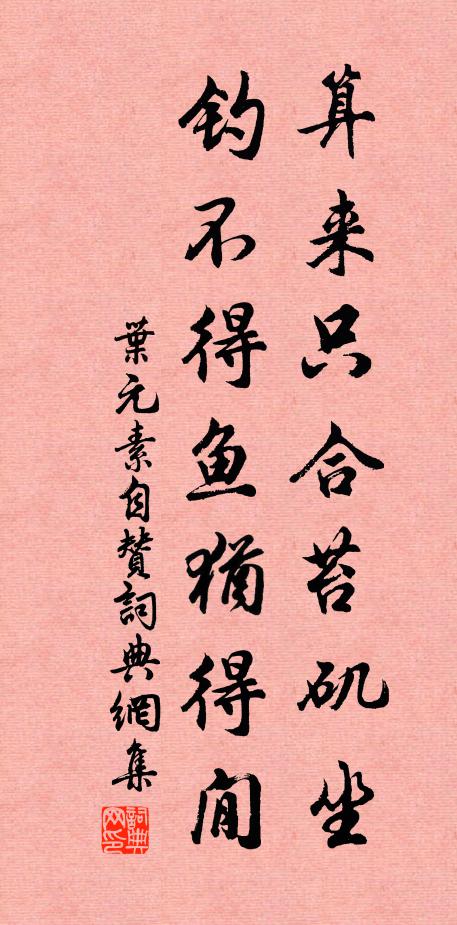 算来只合苔矶坐
钓不得鱼犹得闲
葉元素自贊詞典網集
詞典网印